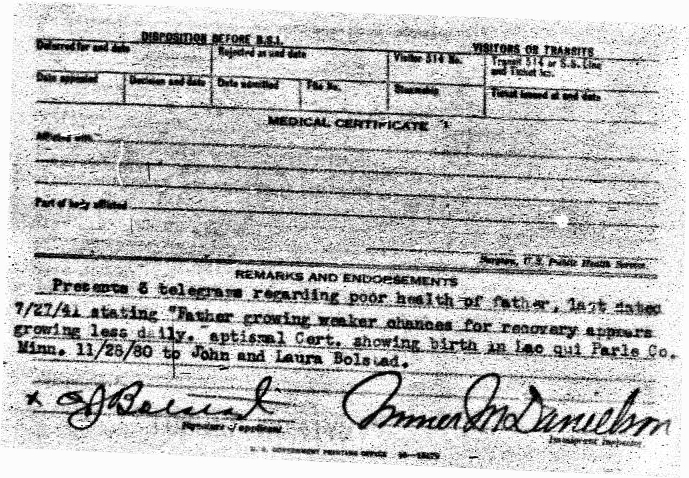 DISPOSITION BEFORE B.S.I.
VISITORS OR TRANSITS
Deferred for and date
Rejected as and date
Visitor 514 No.
Transit 514 or S.S. Line
and Ticket No.
Date appealed
Decision and date
Date admitted
File No.
Steamship
Ticket issued at and date
MEDICAL CERTIFICATE
Afflicted with
Part of body afflicted
Surgeon, U.S. Public Health Service.
REMARKS AND ENDORSEMENTS
Presents 5 telegrams regarding poor health of father, last dated
7/27/41 stating "Father growing weaker chances for recovery appears
growing less daily. aptismal Cert. showing birth in Lac qui Parle Co.
Minn. 11/28/80 to John and Laura Bolstad.
x J Bolstad
McDanielson
Signature of applicant
Immigrant Inspector
U. S. GOVERNMENT PRINTING OFFICE